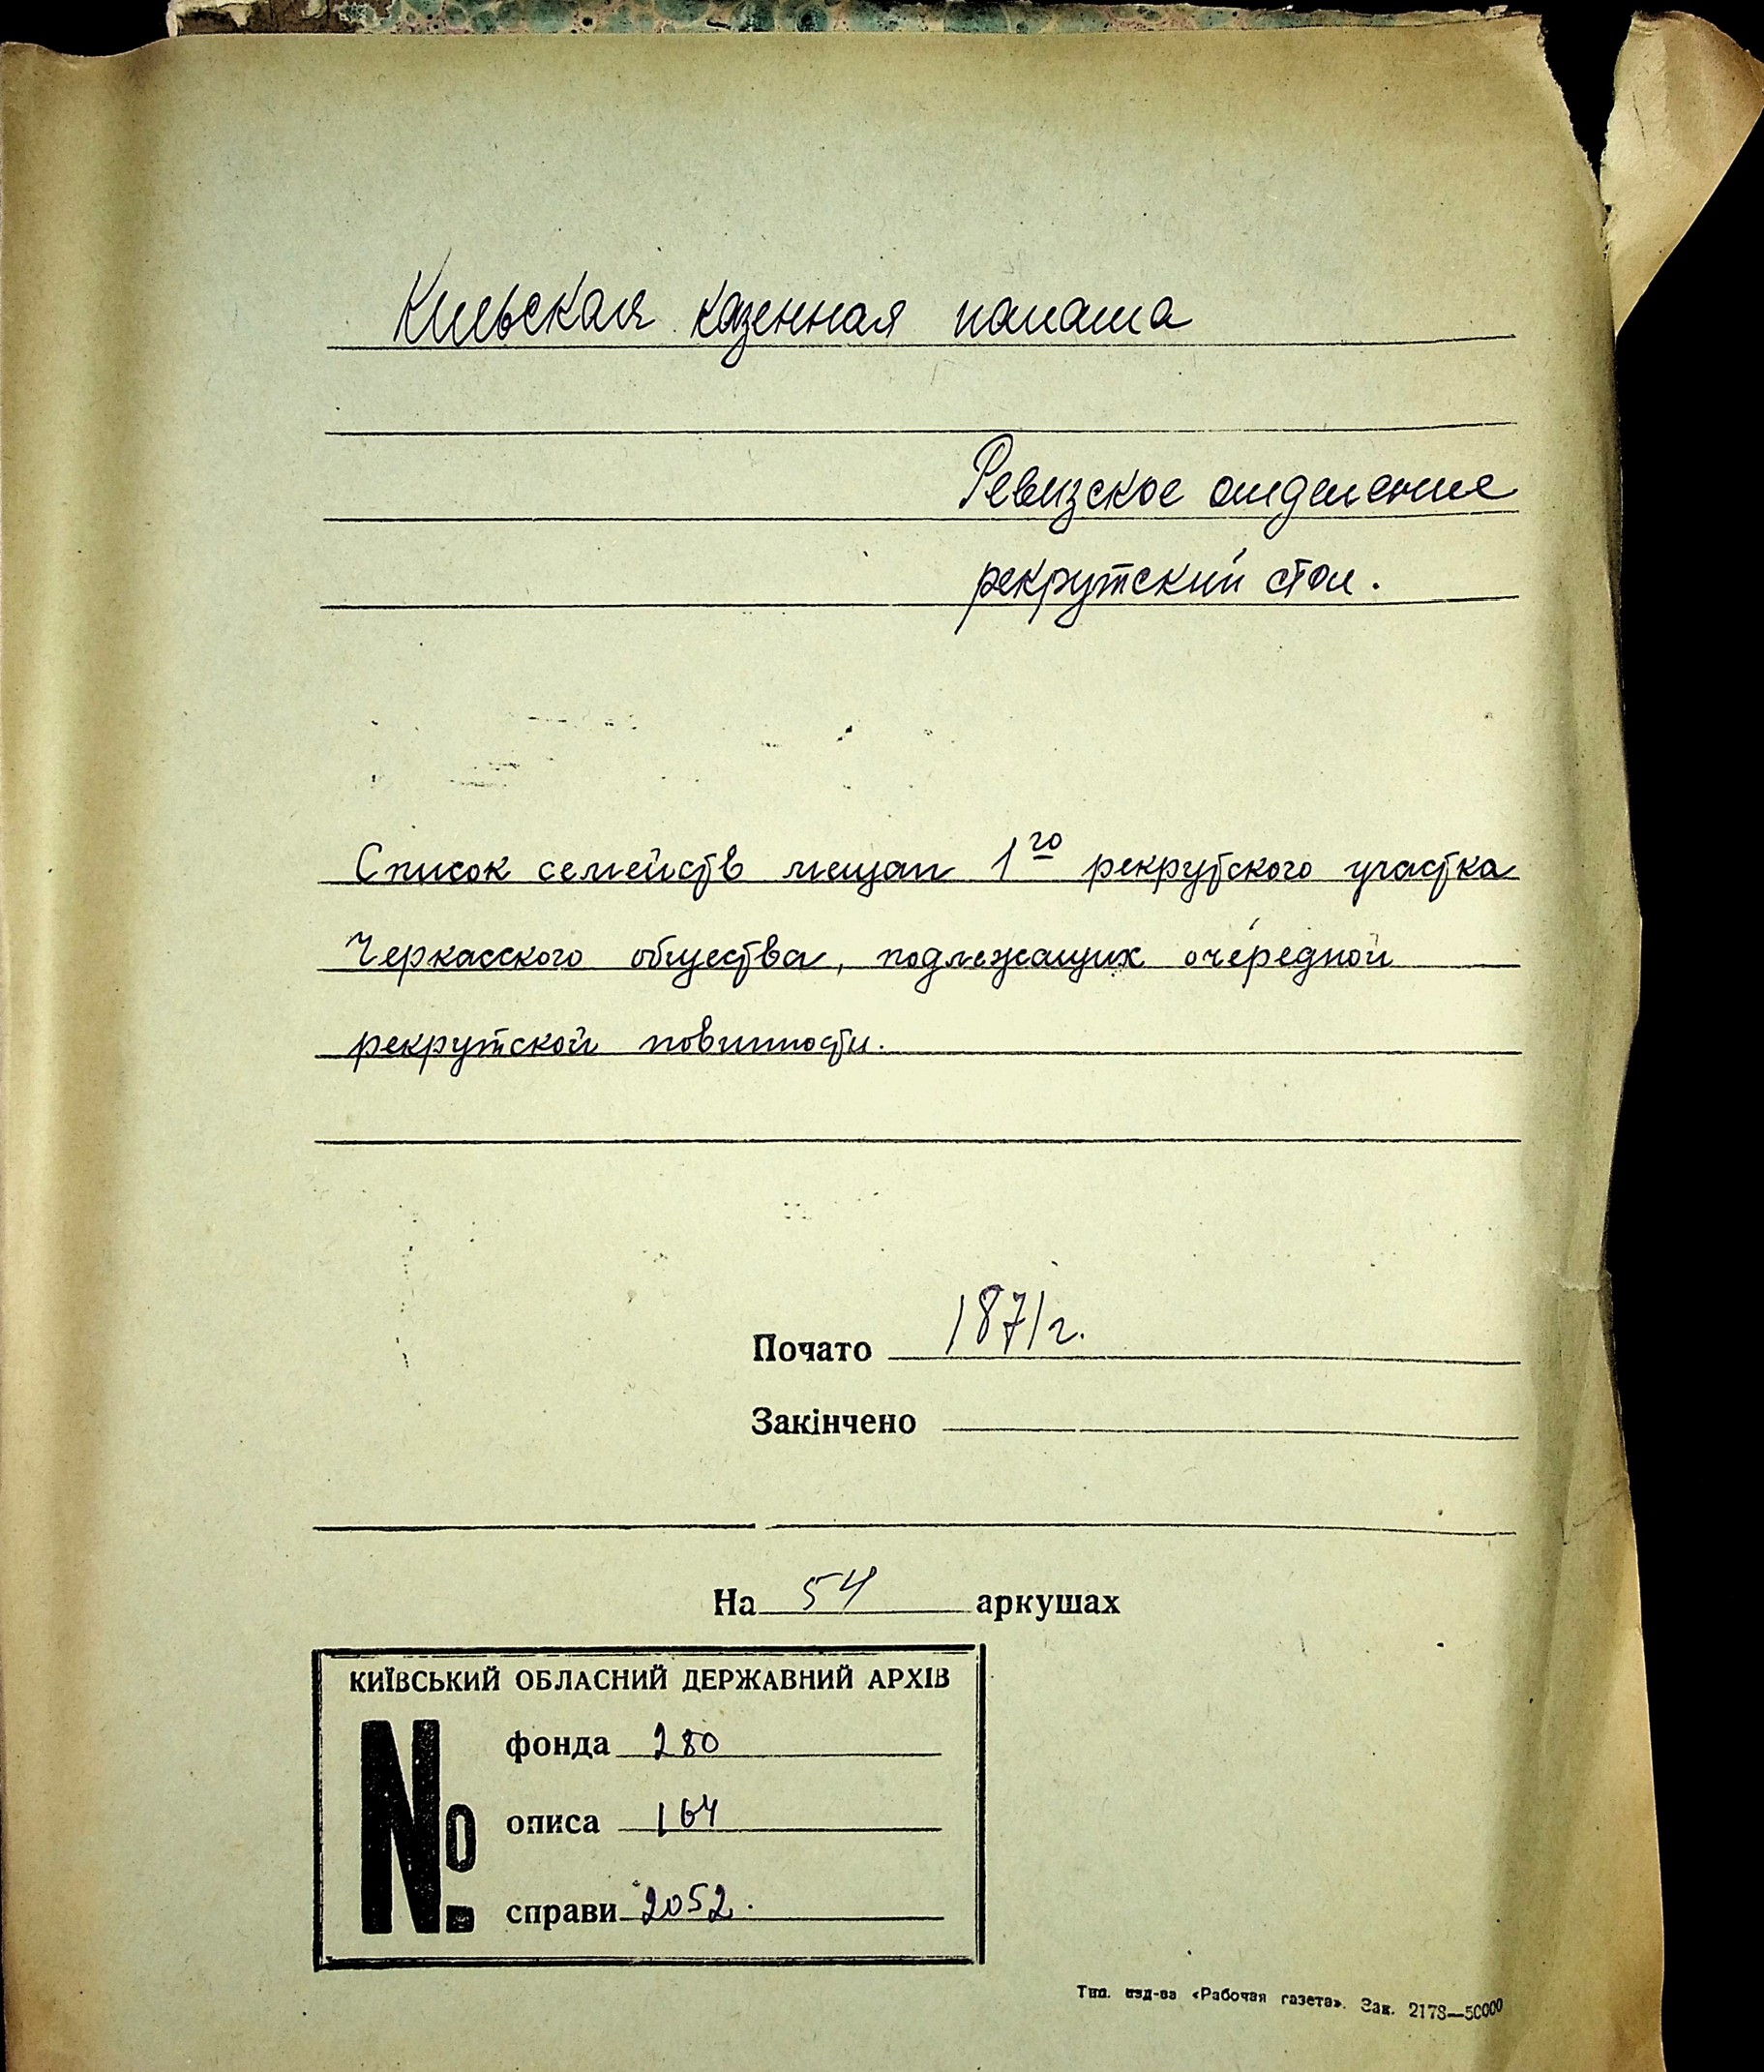 Киевская казенная палата
Ревизское отделение
рекрутский стол.
Список семейств мещан 1го рекрутского участка
Черкасского общества, подлежащих очередной
рекрутской повинности.
Почато 1871 г.
Закінчено
На 54 аркушах
КИЇВСЬКИЙ ОБЛАСНИЙ ДЕРЖАВНИЙ АРХІВ
№ фонда 280
описа 164
справи 2052.
Тип. изд-ва «Рабочая газета». Зак. 2178—50000